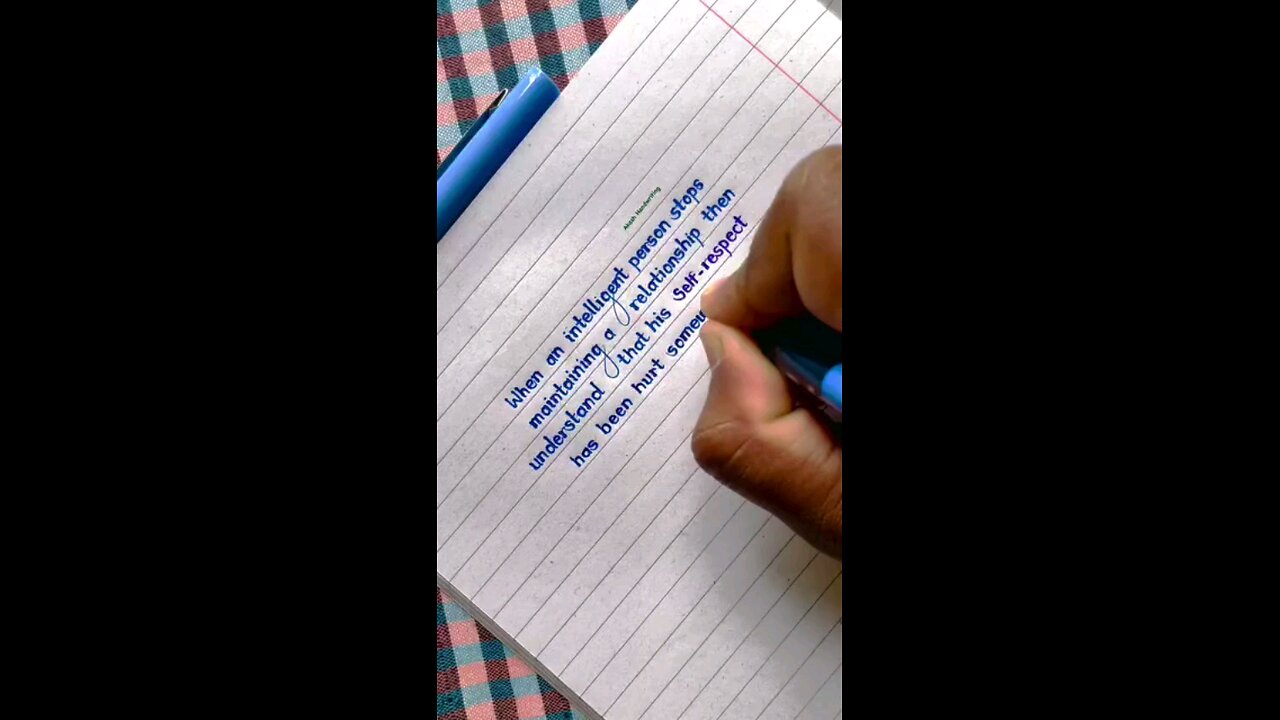 Akash Handwriting
When an intelligent person stops
maintaining a relationship then
understand that his Self-respect
has been hurt